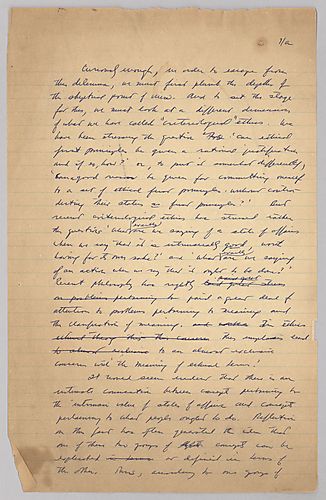 1/a
Curiously enough, in order to escape from
this dilemma, we must first plumb the depths of
the objectivist point of view. And to set the stage
for this, we must look at a different dimension
of what we have called "criteriological" ethics. We
have been stressing the question 'can ethical
first principles be given a rational justification
and if so, how?' or, to put it somewhat differently,
'can good reason be given for committing oneself
to a set of ethical first principles without contra-
dicting their status as first principles?' But
recent criteriological ethics has stressed rather
the question 'what are we really saying of a state of affairs
when we say that it is intrinsically good, worth
having for its own sake?' and 'what are we really saying
of an action when we say that it ought to be done?'
Recent philosophy has rightly
on problems pertaining to paid a great deal of
attention to problems pertaining to meaning and
the clarification of meaning. In ethics
this emphasis led
to an almost exclusive
concern with the meaning of ethical terms.
It would seem evident that there is an
intimate connection between concepts pertaining to
the intrinsic value of states of affairs and concepts
pertaining to what people ought to do. Reflection
on this fact has often generated the idea that
one of these two groups of concepts can be
explicated or defined in terms of
the other. Thus, according to one group of